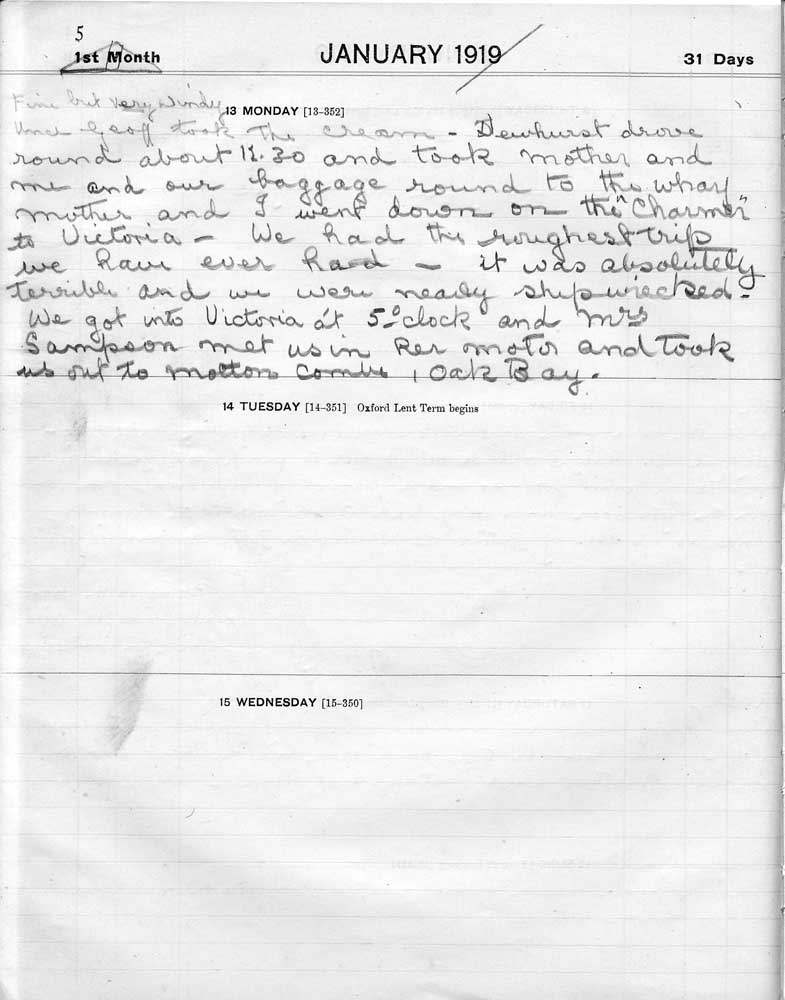 5
1st Month JANUARY 1919 31 Days
Fine but very windy 13 MONDAY [13-352]
Uncle Geoff took the cream - Dewhurst drove
round about 11.30 and took mother and
me and our baggage round to the wharf
mother and I went down on the "Charmer"
to Victoria - We had the roughest trip
we have ever had - it was absolutely
terrible and we were nearly shipwrecked -
We got into Victoria at 5 o'clock and Mrs
Sampson met us in her motor and took
us out to Molton Combe, Oak Bay.
14 TUESDAY [14-351] Oxford Lent Term begins
15 WEDNESDAY [15-350]